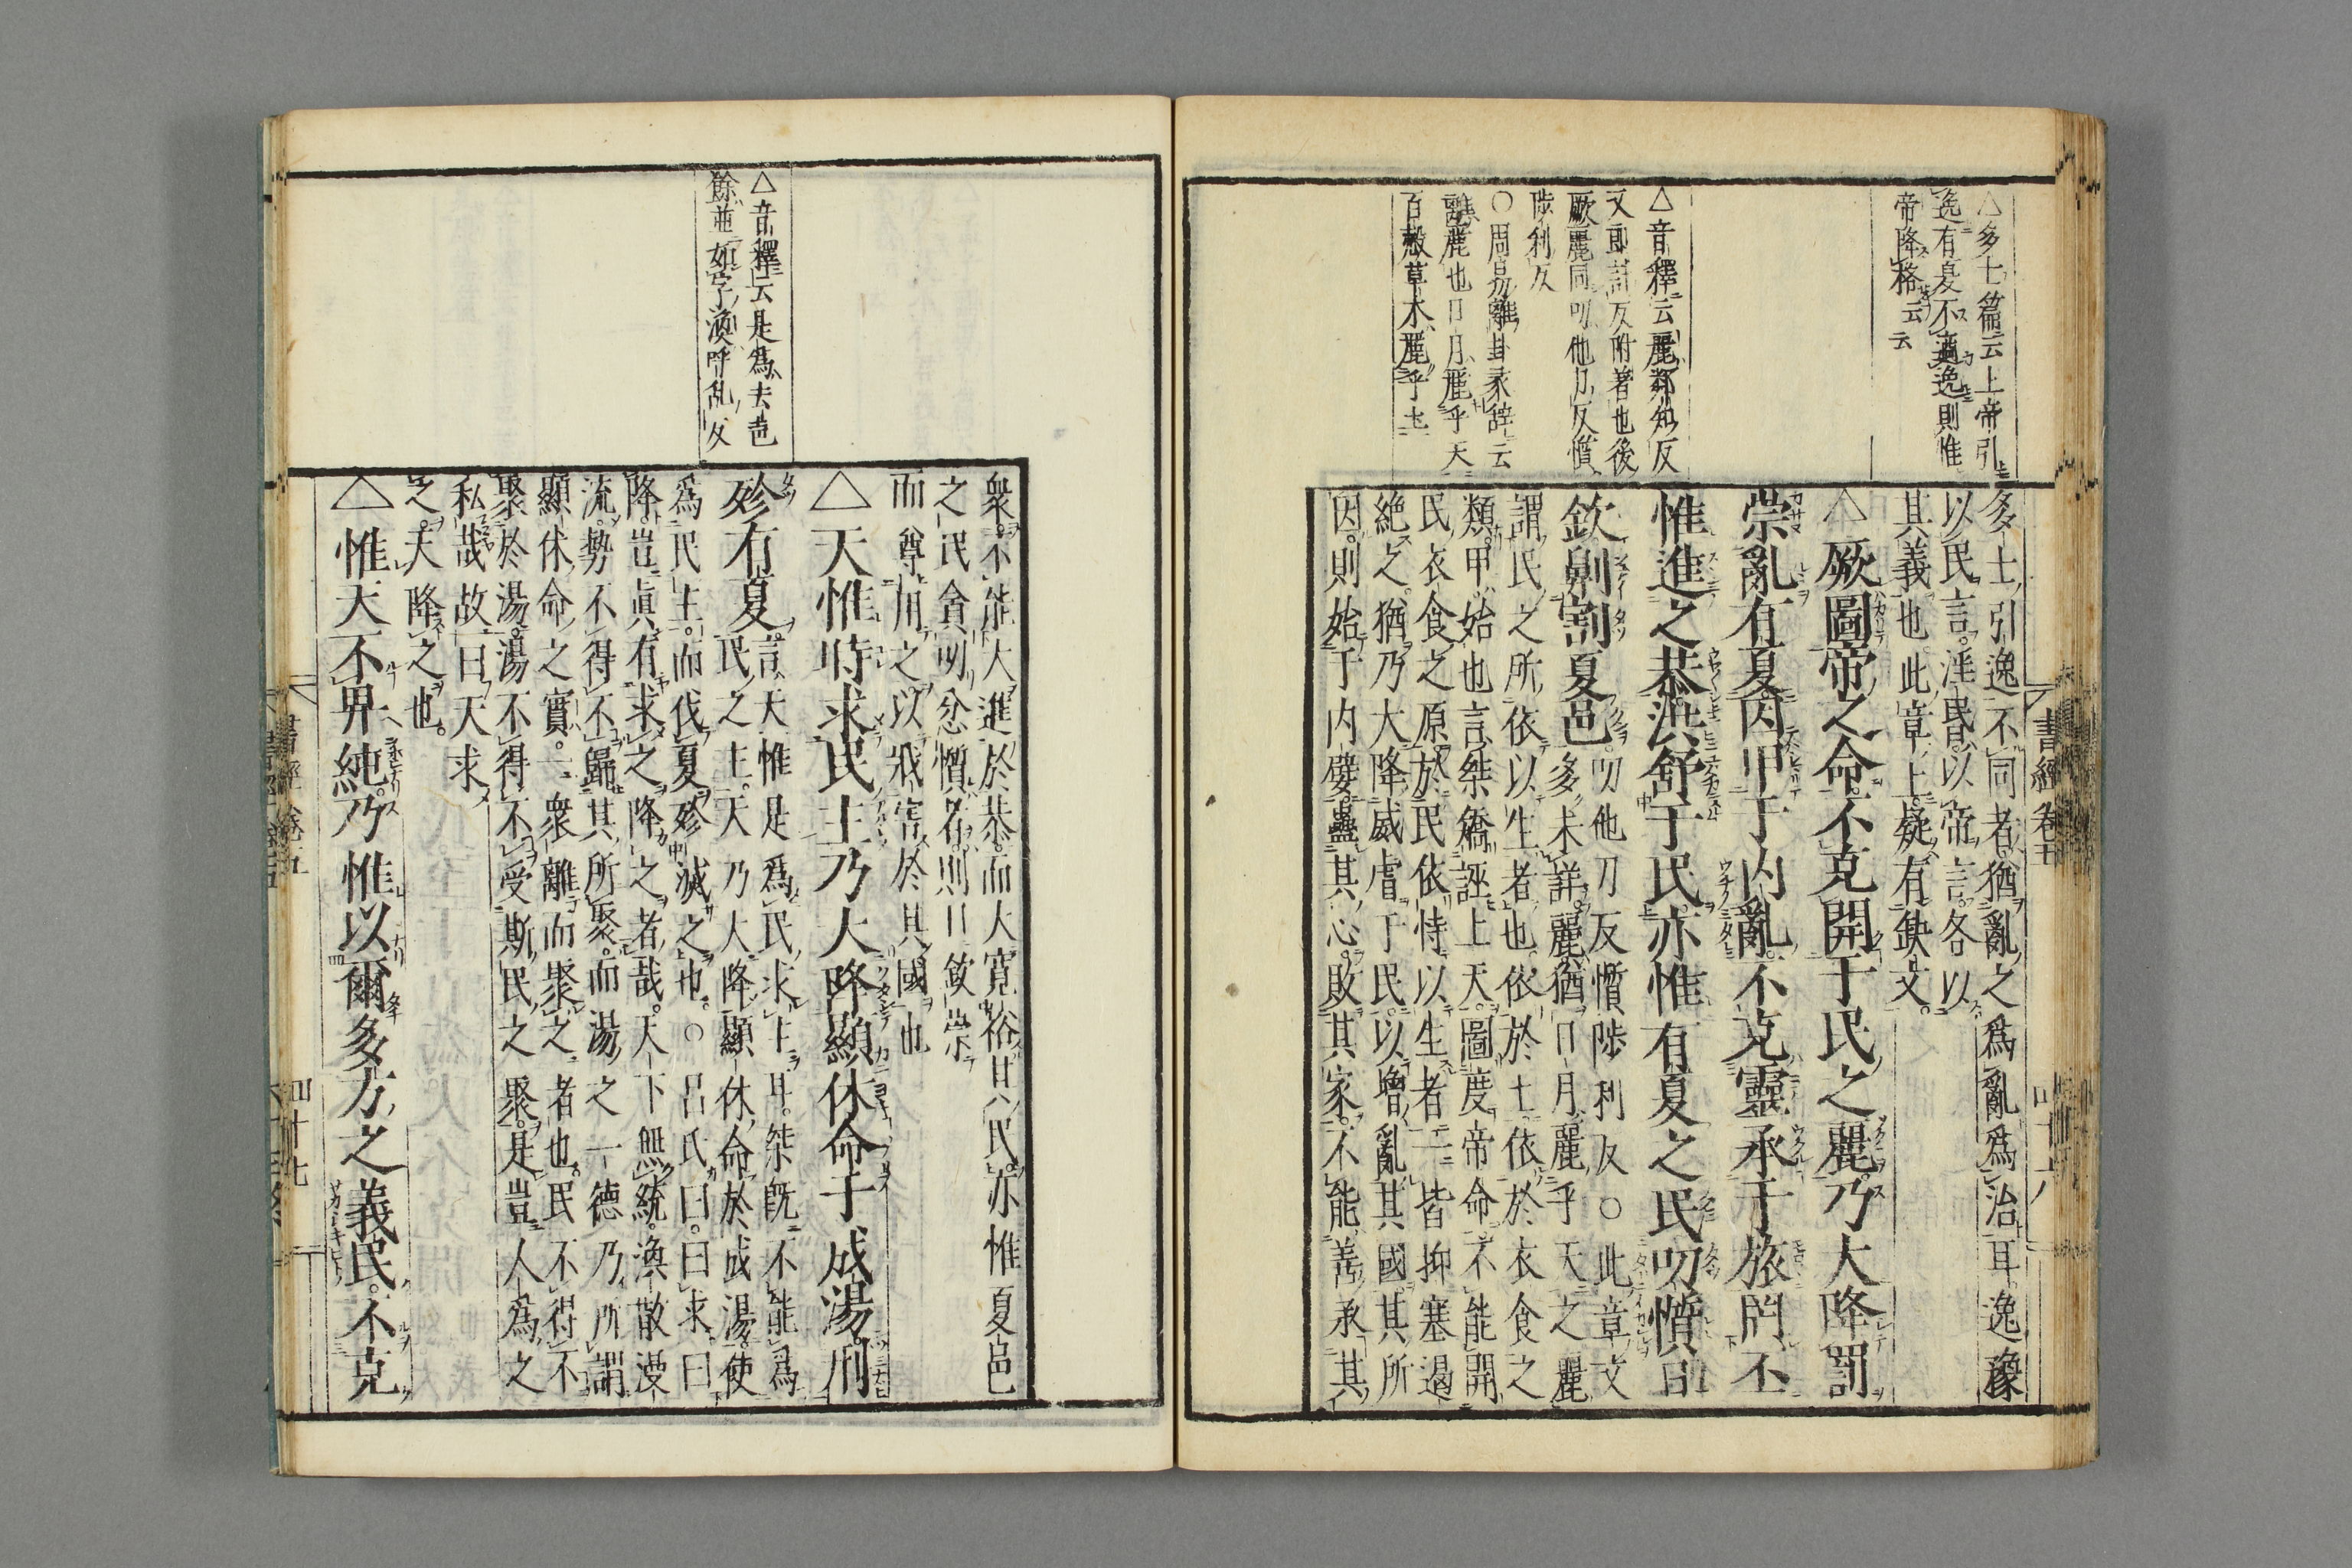 △多士篇云上帝引
逸有夏不適逸則惟
帝降格云云
△音釋云麗鄰知反
又郎計反附著也後
厥麗同叨他刀反懫
陟利反
○周易離卦彖辞云
離麗也日月麗乎天
百穀草木麗乎土
多士引逸不同者猶亂之爲亂爲治耳逸豫
以民言淫昏以帝言各以
其義也此章上疑有缺文
△厥圖帝之命不克開于民之麗乃大降罰
崇亂有夏因甲于内亂不克靈承于旅罔丕
惟進之恭洪舒于民亦惟有夏之民叨懫日
欽劓割夏邑叨他刀反懫陟利反○此章文
多未詳麗猶日月麗乎天之麗
謂民之所依以生者也依於土依於衣食之
類甲始也言桀矯誣上天圖度帝命不能開
民衣食之原於民依恃以生者一皆抑塞遏
絶之猶乃大降威虐于民以增亂其國其所
因則始于内嬖蠱其心敗其家不能善承其
書經卷五
四十六
△音釋云是爲去声
餘並如字渙呼乱反
衆不能大進於恭而大寛裕其民亦惟夏邑
之民貪叨忿懫者則日欽崇
而尊用之以戕害於其國也
△天惟時求民主乃大降顯休命于成湯刑
殄有夏言天惟是爲民求主耳桀既不能爲
民之主天乃大降顯休命於成湯使
爲民主而伐夏殄滅之也○呂氏曰曰求曰
降豈眞有求之降之者哉天下無統渙散漫
流勢不得不歸其所聚而湯之一德乃所謂
顯休命之實一衆離而聚之者也民不得不
聚於湯湯不得不受斯民之聚是豈人爲之
私哉故曰天求
之天降之也
△惟天不畀純乃惟以爾多方之義民不克
書經卷五
四十七